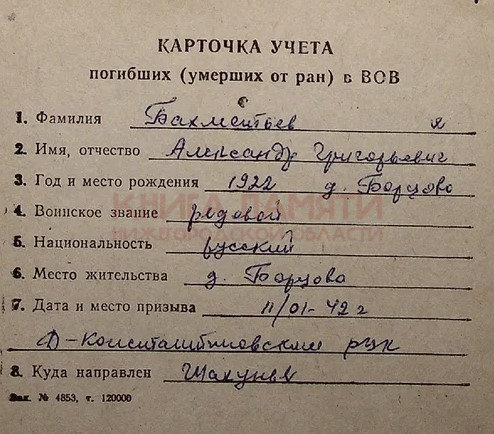 КАРТОЧКА УЧЕТА
погибших (умерших от ран) в ВОВ
1. Фамилия Бахметьев
2. Имя, отчество Александр Григорьевич
3. Год и место рождения 1922 д. Борцово
КНИГА ПАМЯТИ
4. Воинское звание рядовой
НИЖЕГОРОДСКОЙ ОБЛАСТИ
5. Национальность русский
6. Место жительства д. Борцово
7. Дата и место призыва 11/01-42 г
Д-Константиновским рвк
8. Куда направлен
Зак. № 4853, т. 120000